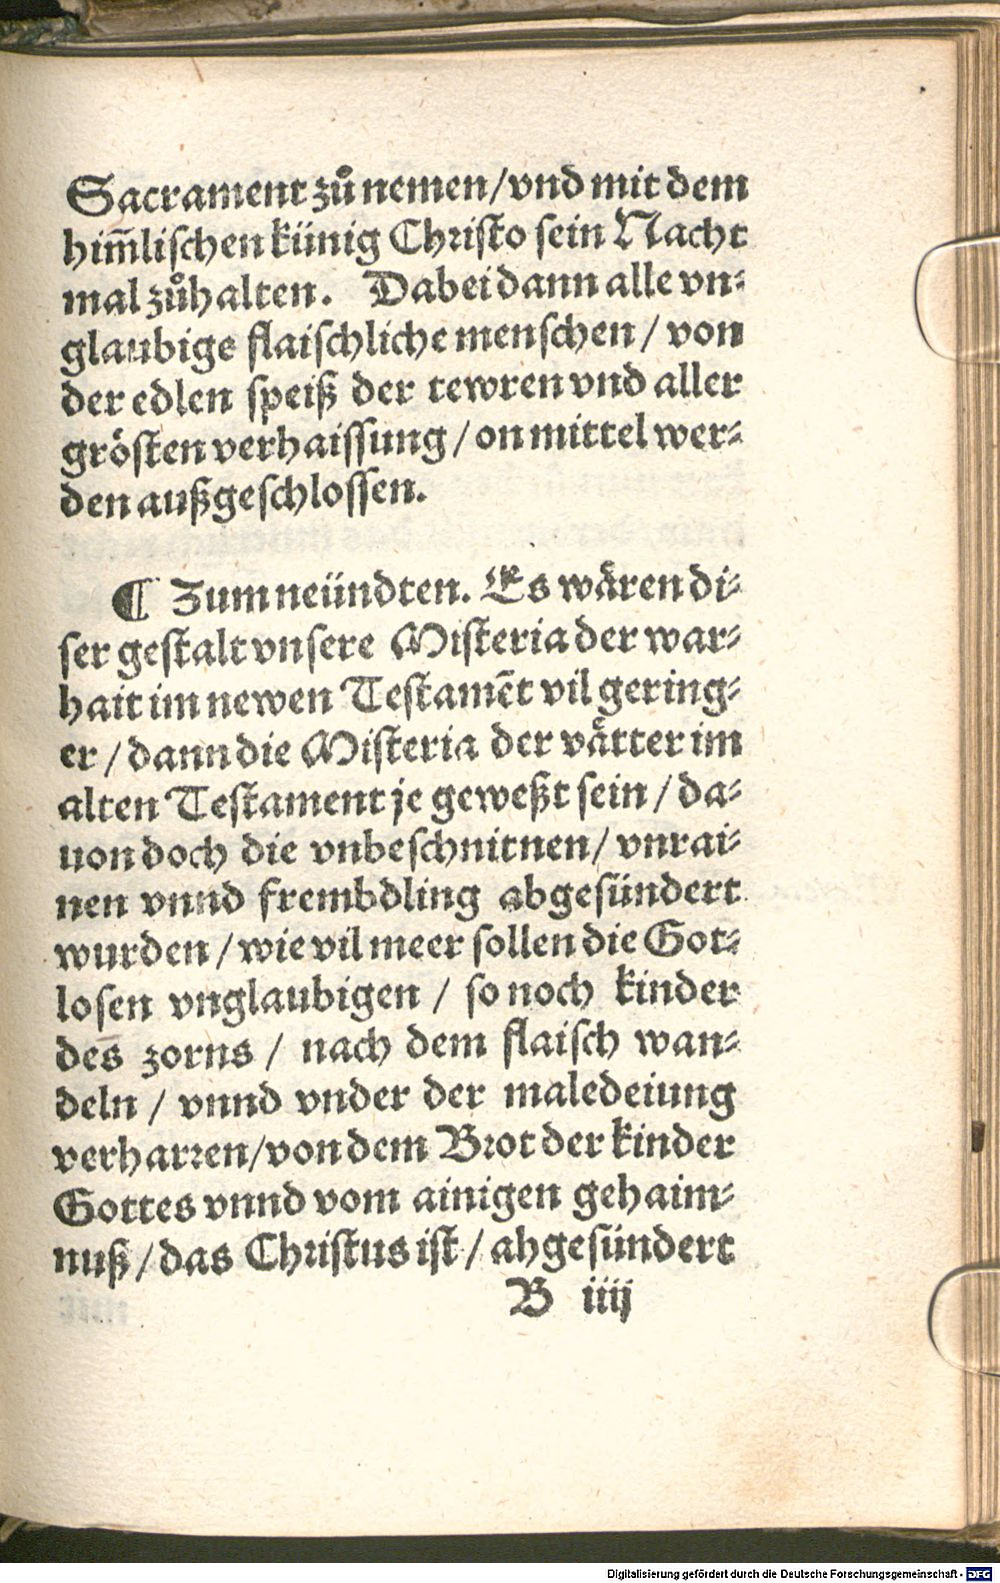 Sacrament zuͦ nemen/vnd mit dem
him̃lischen künig Christo sein Nacht
mal zuͦhalten. Dabei dann alle vn-
glaubige flaischliche menschen / von
der edlen speiß der tewren vnd aller
grösten verhaissung / on mittel wer-
den außgeschlossen.
¶ Zum neündten. Es wären di-
ser gestalt vnsere Misteria der war-
hait im newen Testamẽt vil gering-
er / dann die Misteria der vätter im
alten Testament je geweßt sein / da-
uon doch die vnbeschnitnen/ vnrai-
nen vnnd frembdling abgesündert
wurden / wie vil meer sollen die Got-
losen vnglaubigen / so noch kinder
des zorns / nach dem flaisch wan-
deln / vnnd vnder der maledeiung
verharren/von dem Brot der kinder
Gottes vnnd vom ainigen gehaim-
nuß / das Christus ist / ahgesündert
B iiij
Digitalisierung gefördert durch die Deutsche Forschungsgemeinschaft - DFG